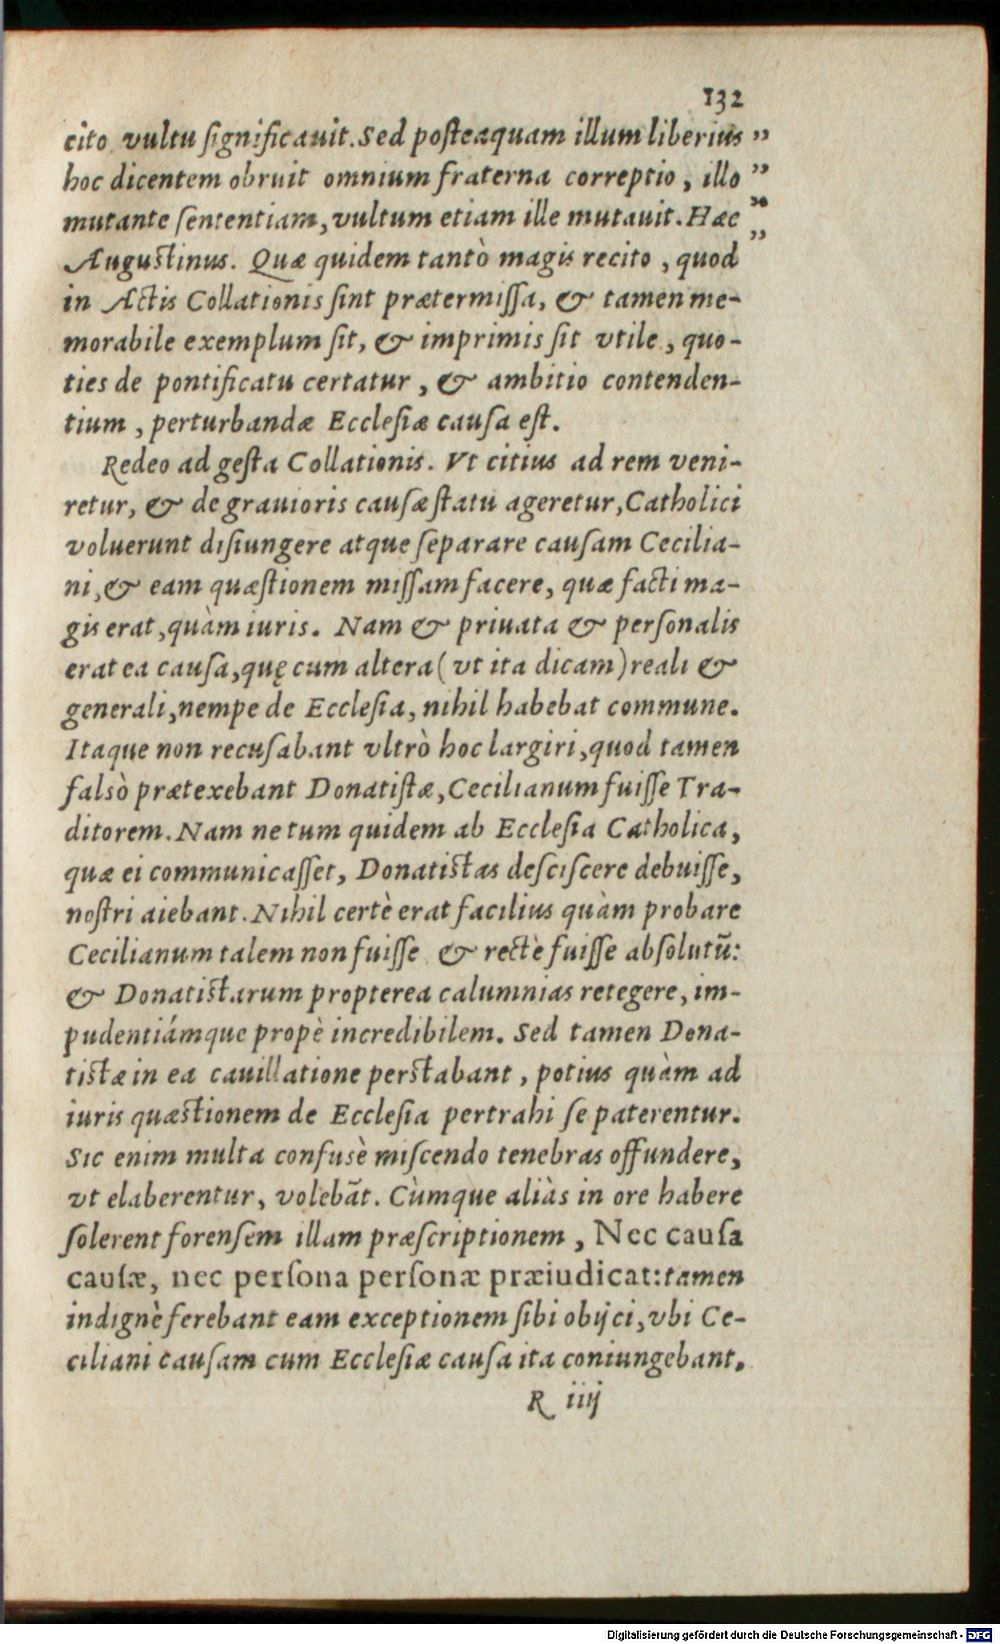 132
cito vultu ſignificauit. Sed poſteaquam illum liberius ”
hoc dicentem obruit omnium fraterna correptio, illo ”
mutante ſententiam, vultum etiam ille mutauit. Hæc ”
Auguſtinus. Quæ quidem tantò magis recito, quod ”
in Actis Collationis ſint prætermiſſa, & tamen me-
morabile exemplum ſit, & imprimis ſit vtile, quo-
ties de pontificatu certatur, & ambitio contenden-
tium, perturbandæ Eccleſiæ cauſa eſt.
Redeo ad geſta Collationis. Vt citius ad rem veni-
retur, & de grauioris cauſæ ſtatu ageretur, Catholici
voluerunt diſiungere atque ſeparare cauſam Cecilia-
ni, & eam quæſtionem miſſam facere, quæ facti ma-
gis erat, quàm iuris. Nam & priuata & perſonalis
erat ea cauſa, quę cum altera (vt ita dicam) reali &
generali, nempe de Eccleſia, nihil habebat commune.
Itaque non recuſabant vltrò hoc largiri, quod tamen
falsò prætexebant Donatiſtæ, Cecilianum fuiſſe Tra-
ditorem. Nam ne tum quidem ab Eccleſia Catholica,
quæ ei communicaſſet, Donatiſtas deſciſcere debuiſſe,
noſtri aiebant. Nihil certè erat facilius quàm probare
Cecilianum talem non fuiſſe & rectè fuiſſe abſolutũ:
& Donatiſtarum propterea calumnias retegere, im-
pudentiámque propè incredibilem. Sed tamen Dona-
tiſtæ in ea cauillatione perſtabant, potius quàm ad
iuris quæſtionem de Eccleſia pertrahi ſe paterentur.
Sic enim multa confusè miſcendo tenebras offundere,
vt elaberentur, volebãt. Cùmque aliàs in ore habere
ſolerent forenſem illam præſcriptionem, Nec cauſa
cauſæ, nec perſona perſonæ præiudicat: tamen
indignè ferebant eam exceptionem ſibi obijci, vbi Ce-
ciliani cauſam cum Eccleſiæ cauſa ita coniungebant.
R iiij
Digitalisierung gefördert durch die Deutsche Forschungsgemeinschaft - DFG